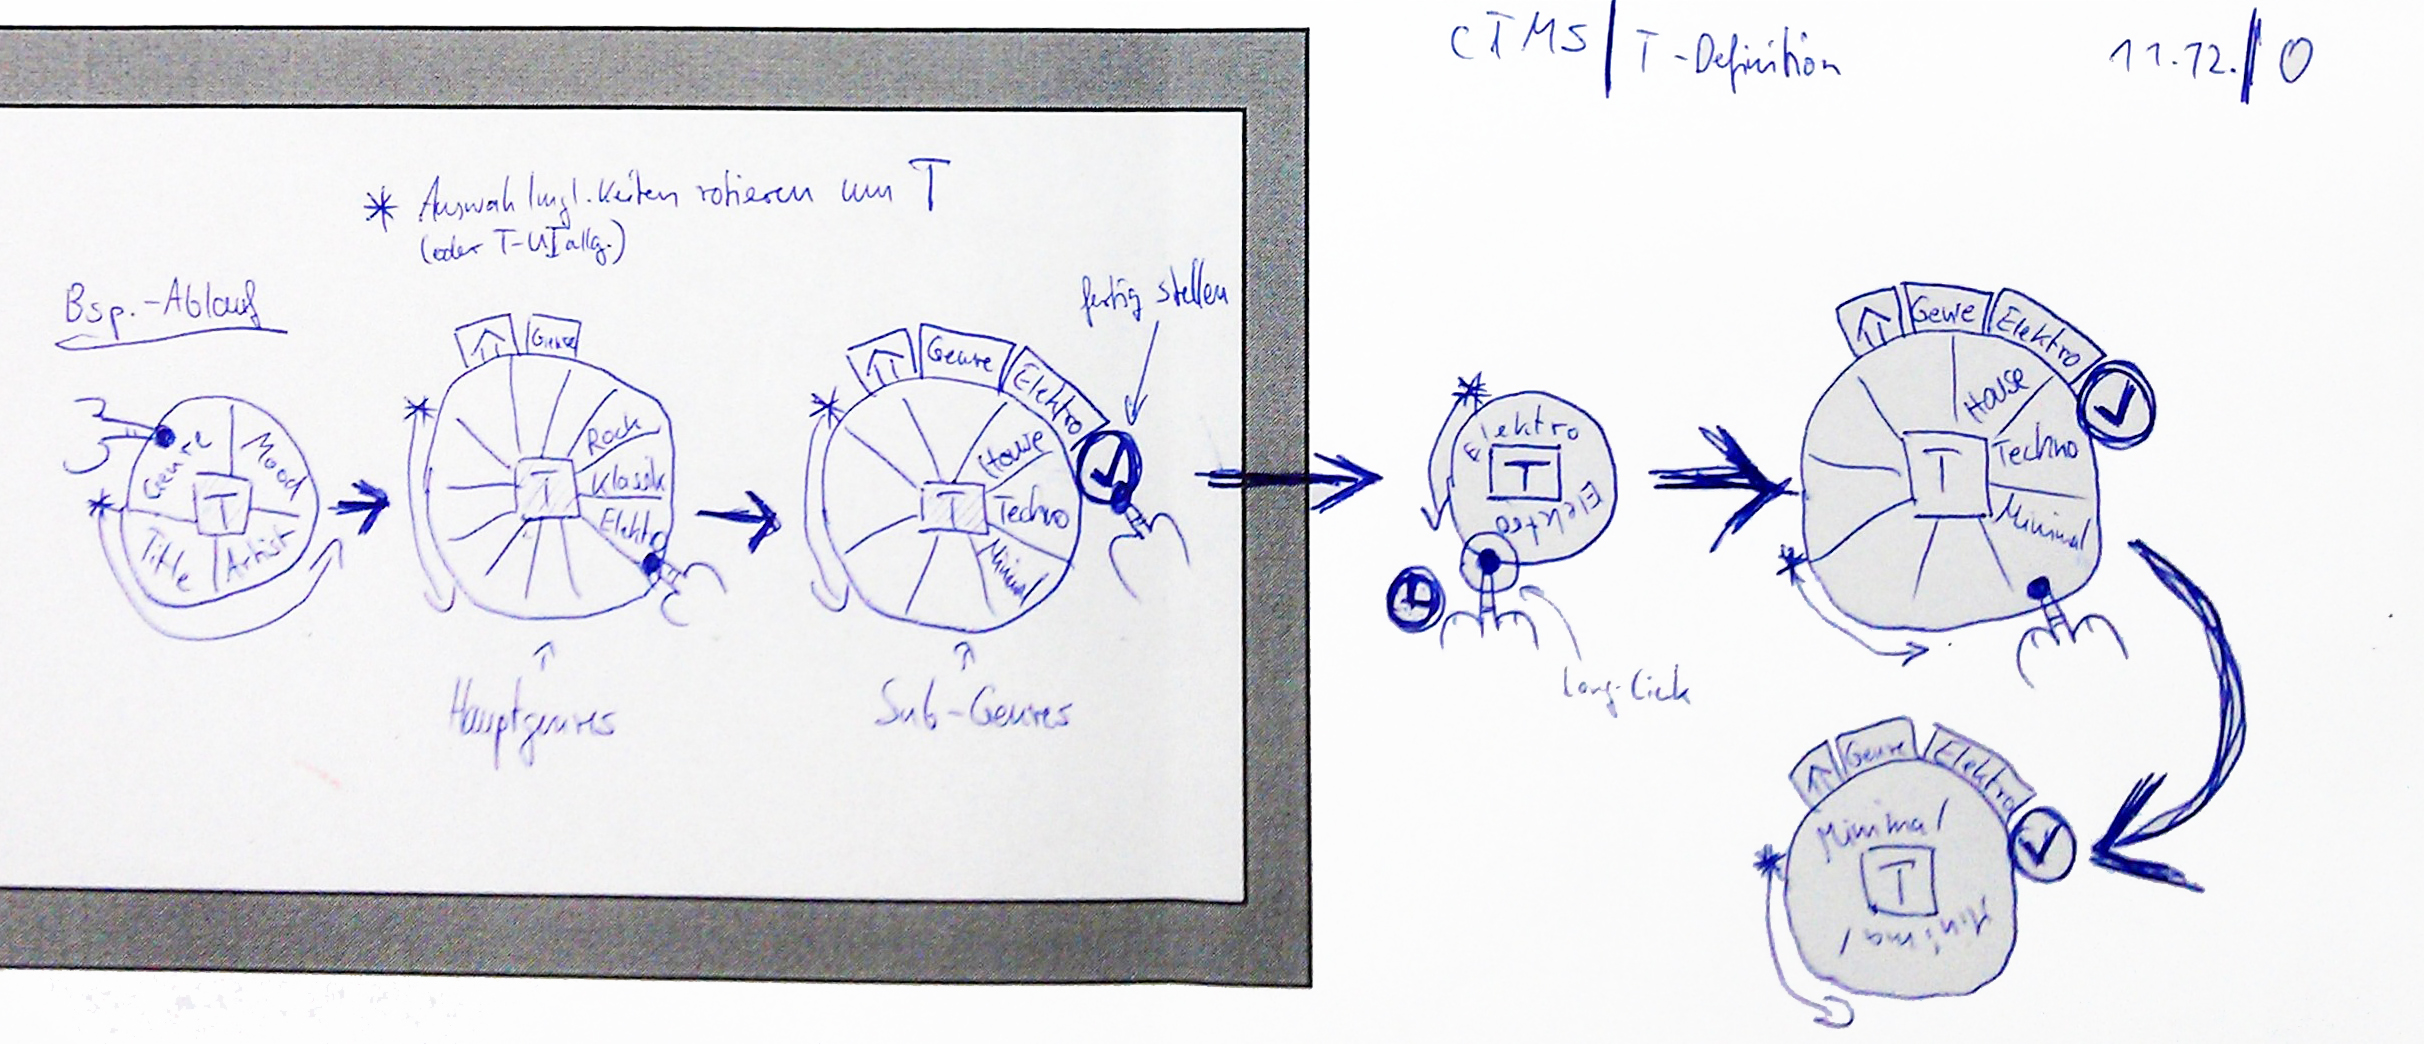 CTMS | T-Definition
11.12.10
* Auswahlmgl.keiten rotieren um T
(oder T-UI allg.)
Bsp.-Ablauf
fertig stellen
Genre
Mood
Title
Artist
T
Genre
Rock
Klassik
Elektro
T
Hauptgenres
Genre
Elektro
House
Techno
Minimal
T
Sub-Genres
Elektro
T
Elektro
Long-Click
Genre
Elektro
House
Techno
Minimal
T
Genre
Elektro
Minimal
T
Minimal